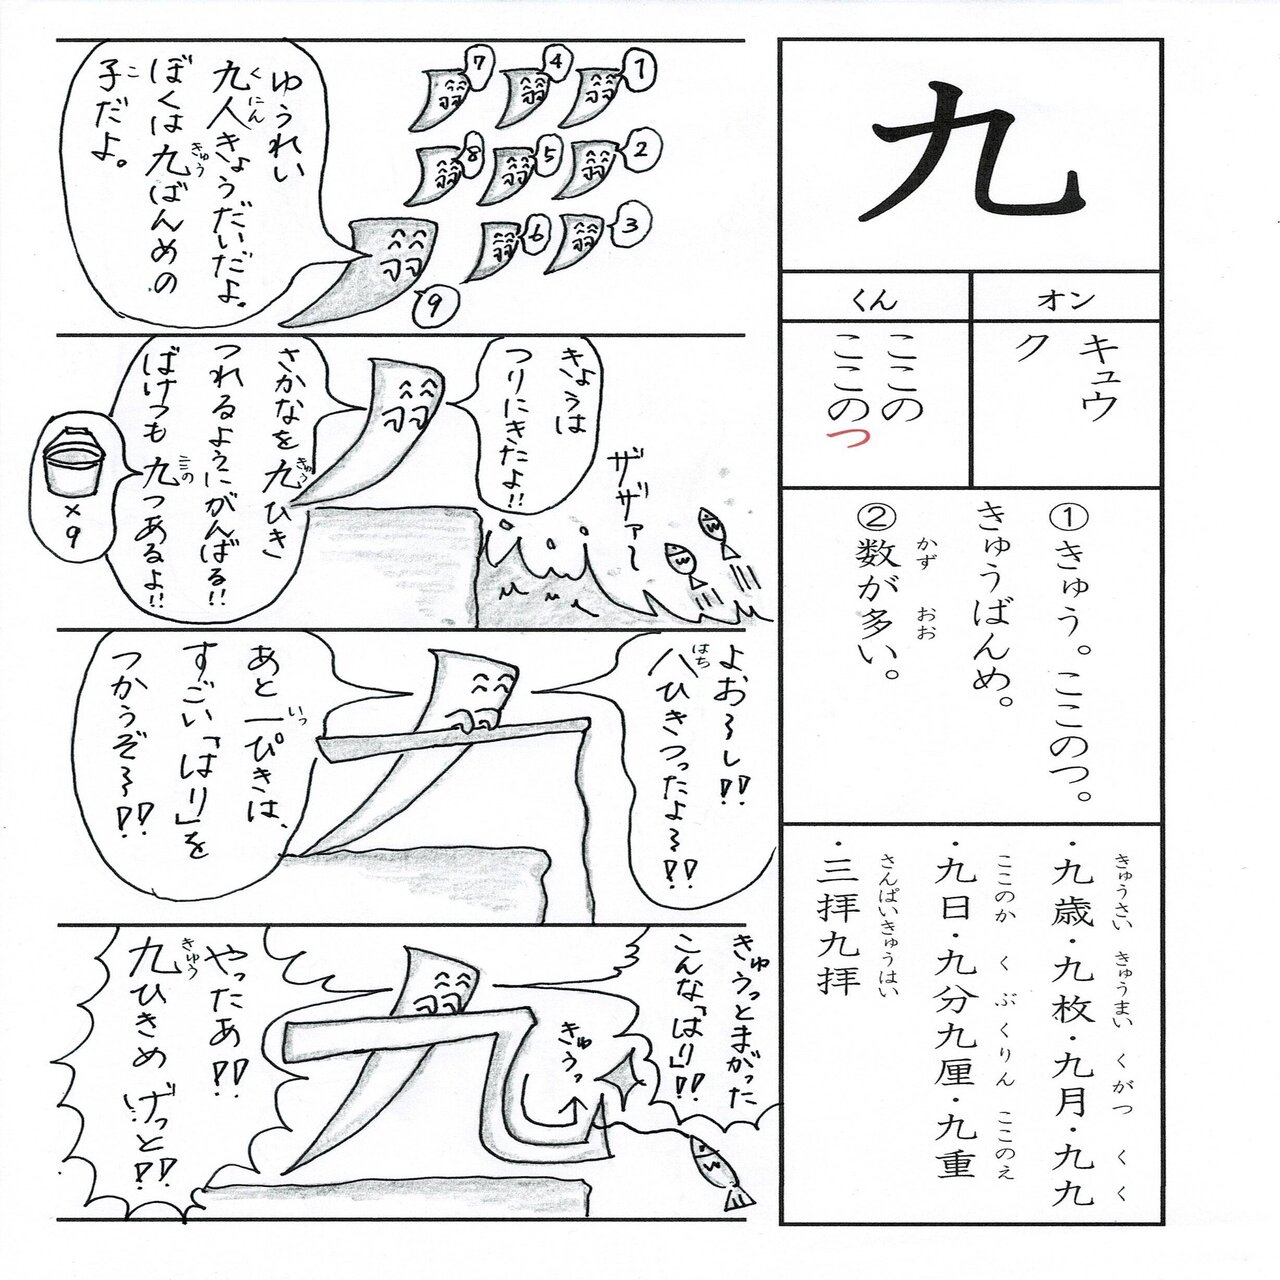 九
オン
くん
キュウ
ク
ここの
ここのつ
①きゅう。ここのつ。
きゅうばんめ。
②数が多い。
かず おお
・九歳・九枚・九月・九九
きゅうさい きゅうまい くがつ くく
・九日・九分九厘・九重
ここのか くぶくりん ここのえ
・三拝九拝
さんぱいきゅうはい
1
2
3
4
5
6
7
8
9
ゆうれい
九人きょうだいだよ。
くにん
ぼくは九ばんめの
きゅう
子だよ。
こ
きょうは
つりにきたよ!!
ザザァ〜
さかなを九ひき
きゅう
つれるようにがんばる!!
ばけつも九つあるよ!!
ここの
×9
よお〜し!!
八ひきつったよ〜!!
はち
あと一ぴきは、
いっ
すごい「はり」を
つかうぞ〜!!
きゅうっとまがった
こんな「はり」!!
きゅうっ
やったあ!!
九ひきめげっと!!
きゅう